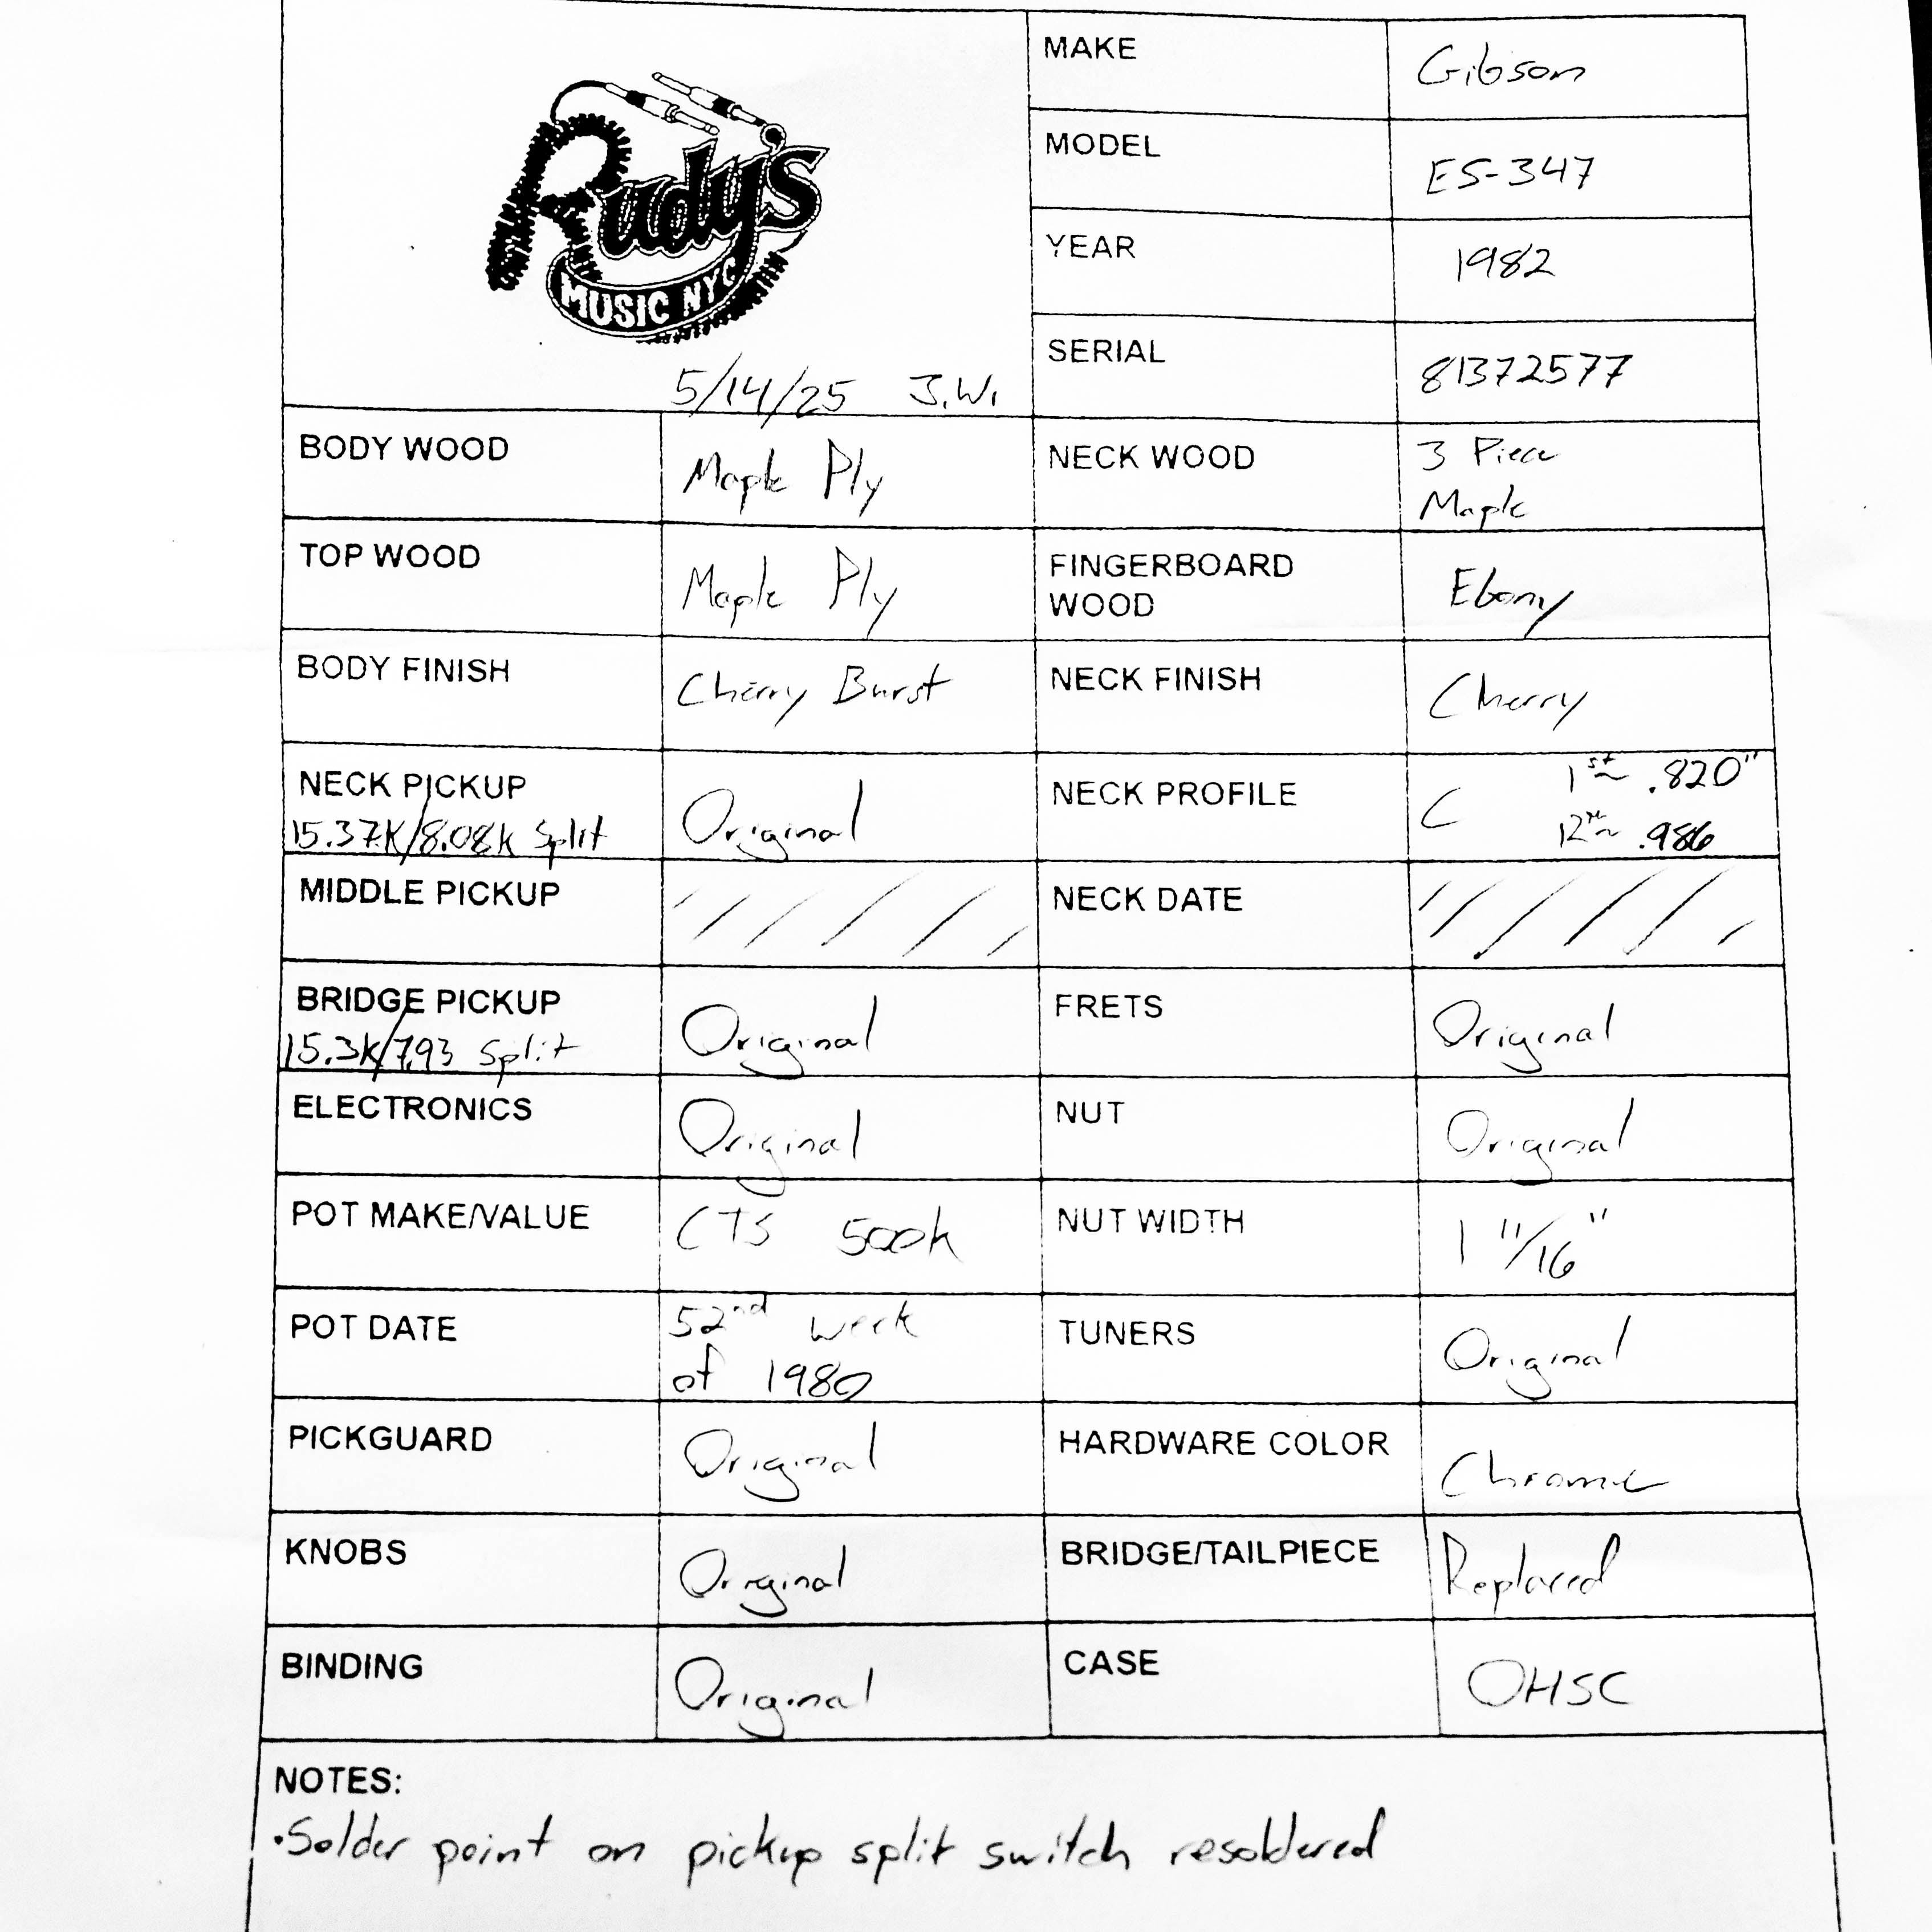 Rudy's
MUSIC NYC
5/14/25 J.W.
MAKE Gibson
MODEL ES-347
YEAR 1982
SERIAL 81372577
BODY WOOD Maple Ply
NECK WOOD 3 Piece
Maple
TOP WOOD Maple Ply
FINGERBOARD
WOOD Ebony
BODY FINISH Cherry Burst
NECK FINISH Cherry
NECK PICKUP
15.37K/8.08K Split
Original
NECK PROFILE C 1st ~ .820"
12th ~ .986
MIDDLE PICKUP
NECK DATE
BRIDGE PICKUP
15.3K/7.93 Split
Original
FRETS Original
ELECTRONICS Original
NUT Original
POT MAKE/VALUE CTS 500k
NUT WIDTH 1 11/16"
POT DATE 52nd week
of 1980
TUNERS Original
PICKGUARD Original
HARDWARE COLOR Chrome
KNOBS Original
BRIDGE/TAILPIECE Replaced
BINDING Original
CASE OHSC
NOTES:
•Solder point on pickup split switch resoldered